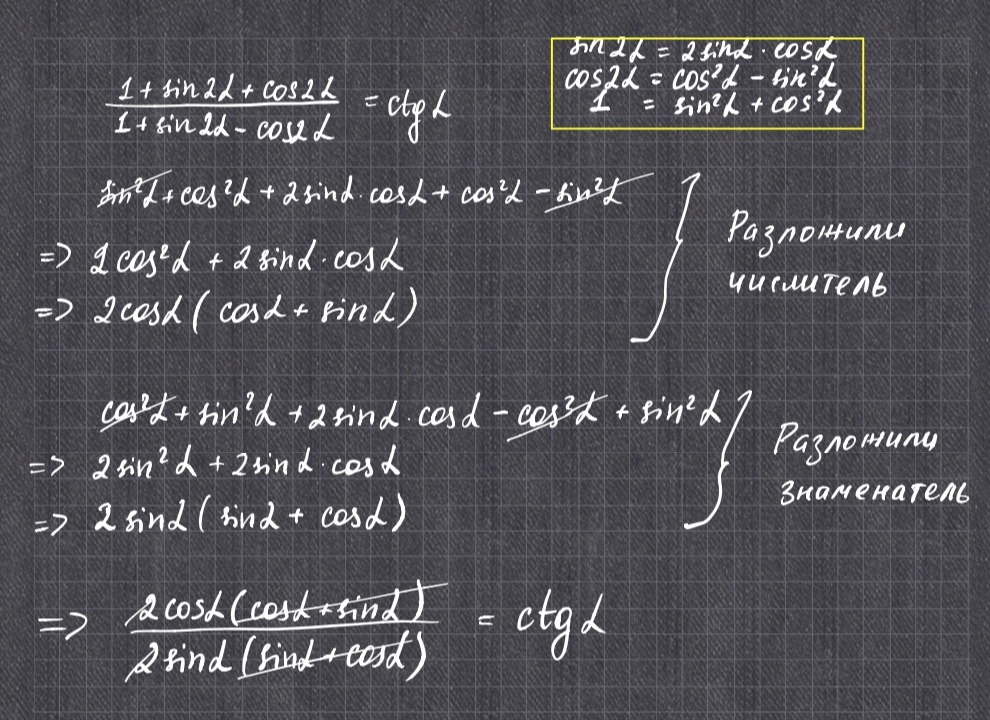 sin 2α = 2 sinα · cosα
cos2α = cos²α − sin²α
1 = sin²α + cos²α
1 + sin 2α + cos2α
1 + sin 2α − cos2α
= ctg α
sin²α + cos²α + 2 sinα · cosα + cos²α − sin²α
=> 2 cos²α + 2 sinα · cosα
=> 2 cosα ( cosα + sinα )
Разложили
числитель
cos²α + sin²α + 2 sinα · cosα − cos²α + sin²α
=> 2 sin²α + 2 sinα · cosα
=> 2 sinα ( sinα + cosα )
Разложили
знаменатель
=> 2 cosα (cosα + sinα)
2 sinα (sinα + cosα)
= ctg α